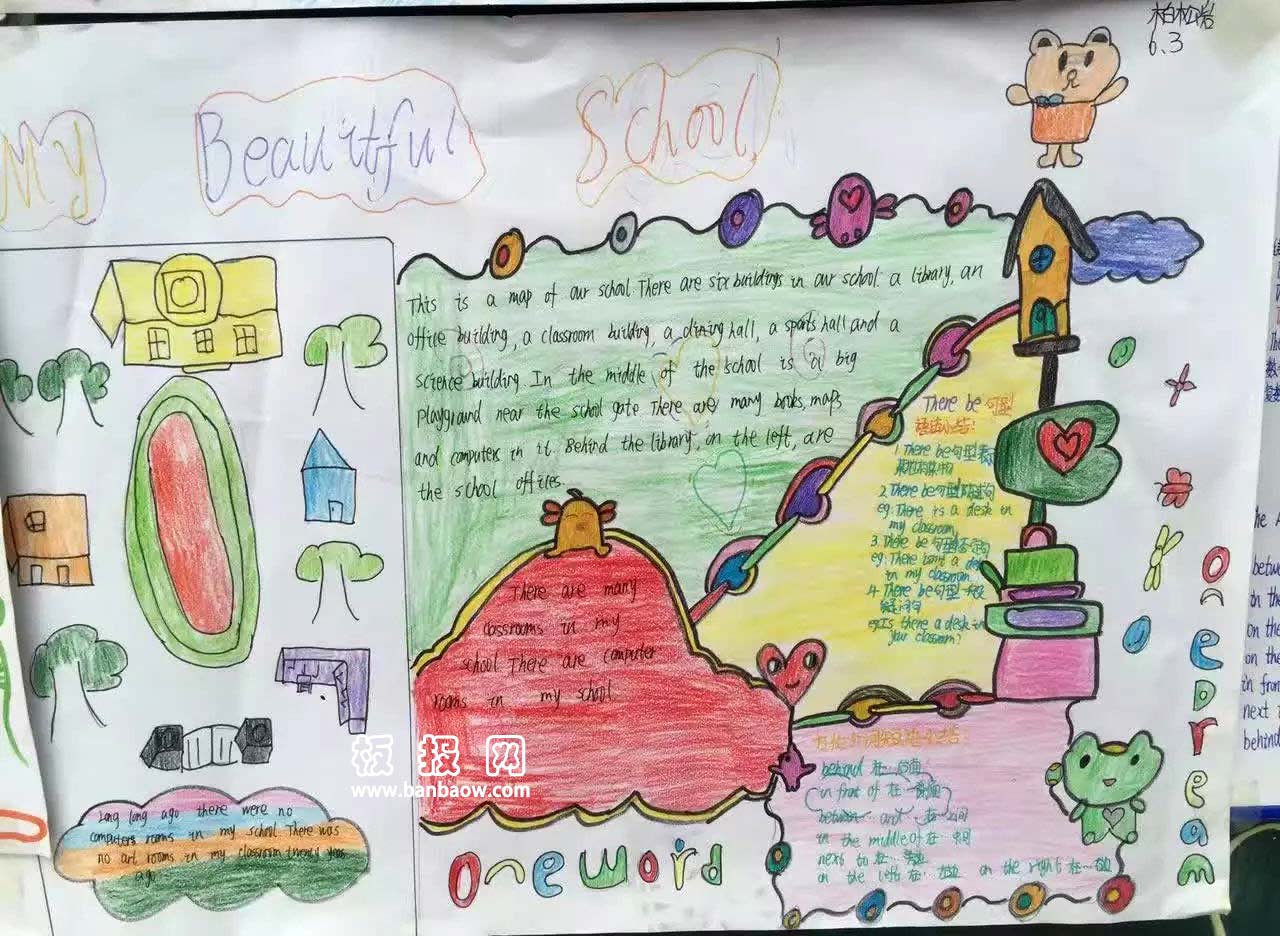 柏松岩
6.3
My Beauitful School
This is a map of our school. There are six buildings in our school. a library, an
office building, a classroom building, a dining hall, a sports hall and a
science building. In the middle of the school is a big
playground near the school gate. There are many books, maps
and computers in it. Behind the library, on the left, are
the school offices.
There be 句型
语法小结:
1. There be句型表
2. There be句型
eg: There is a desk in
my classroom
3. There be句型否定句
eg: There isn't a desk
in my classroom
4. There be句型一般
疑问句
eg: Is there a desk in
your classroom?
There are many
classrooms in my
school. There are computer
rooms in my school
板报网
www.banbaow.com
Long long ago there were no
computers rooms in my school. There was
no art rooms in my classroom twenty years
ago
one word
one dream
behind 在…后面
in front of 在…前面
between… and… 在…之间
in the middle of 在…中间
next to 在…旁边
on the left 在…左边 on the right 在…右边